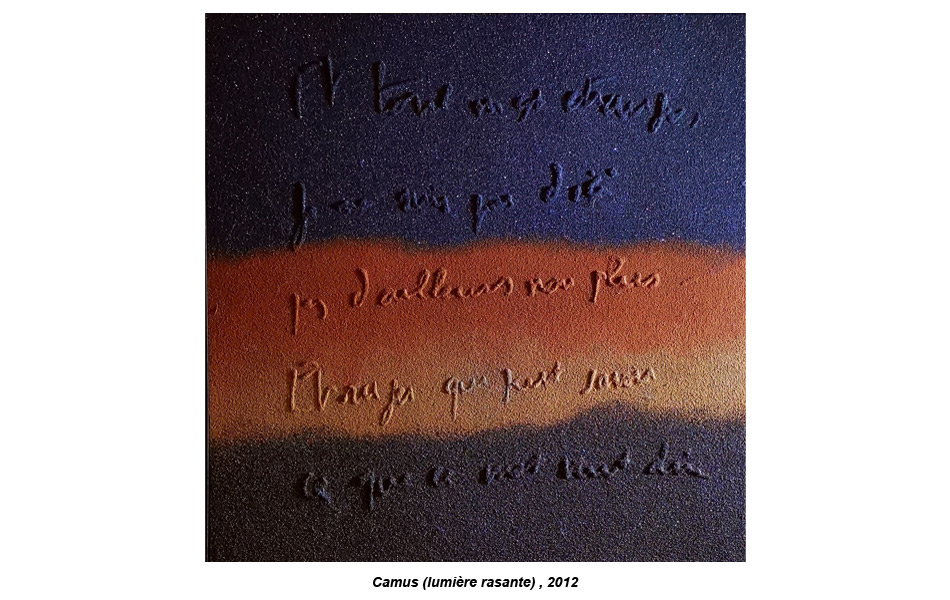 Et tout m'est étranger,
Je ne suis pas d'ici
pas d'ailleurs non plus -
Étranger qui peut savoir
ce que ce mot veut dire
Camus (lumière rasante) , 2012